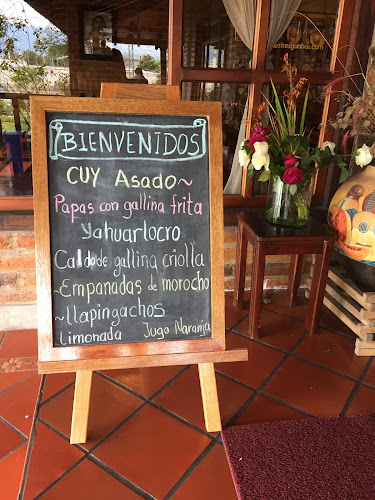 BIENVENIDOS
CUY Asado~
Papas con gallina frita
Yahuarlocro
Caldo de gallina criolla
~Empanadas de morocho
~llapingachos
Limonada Jugo Naranja